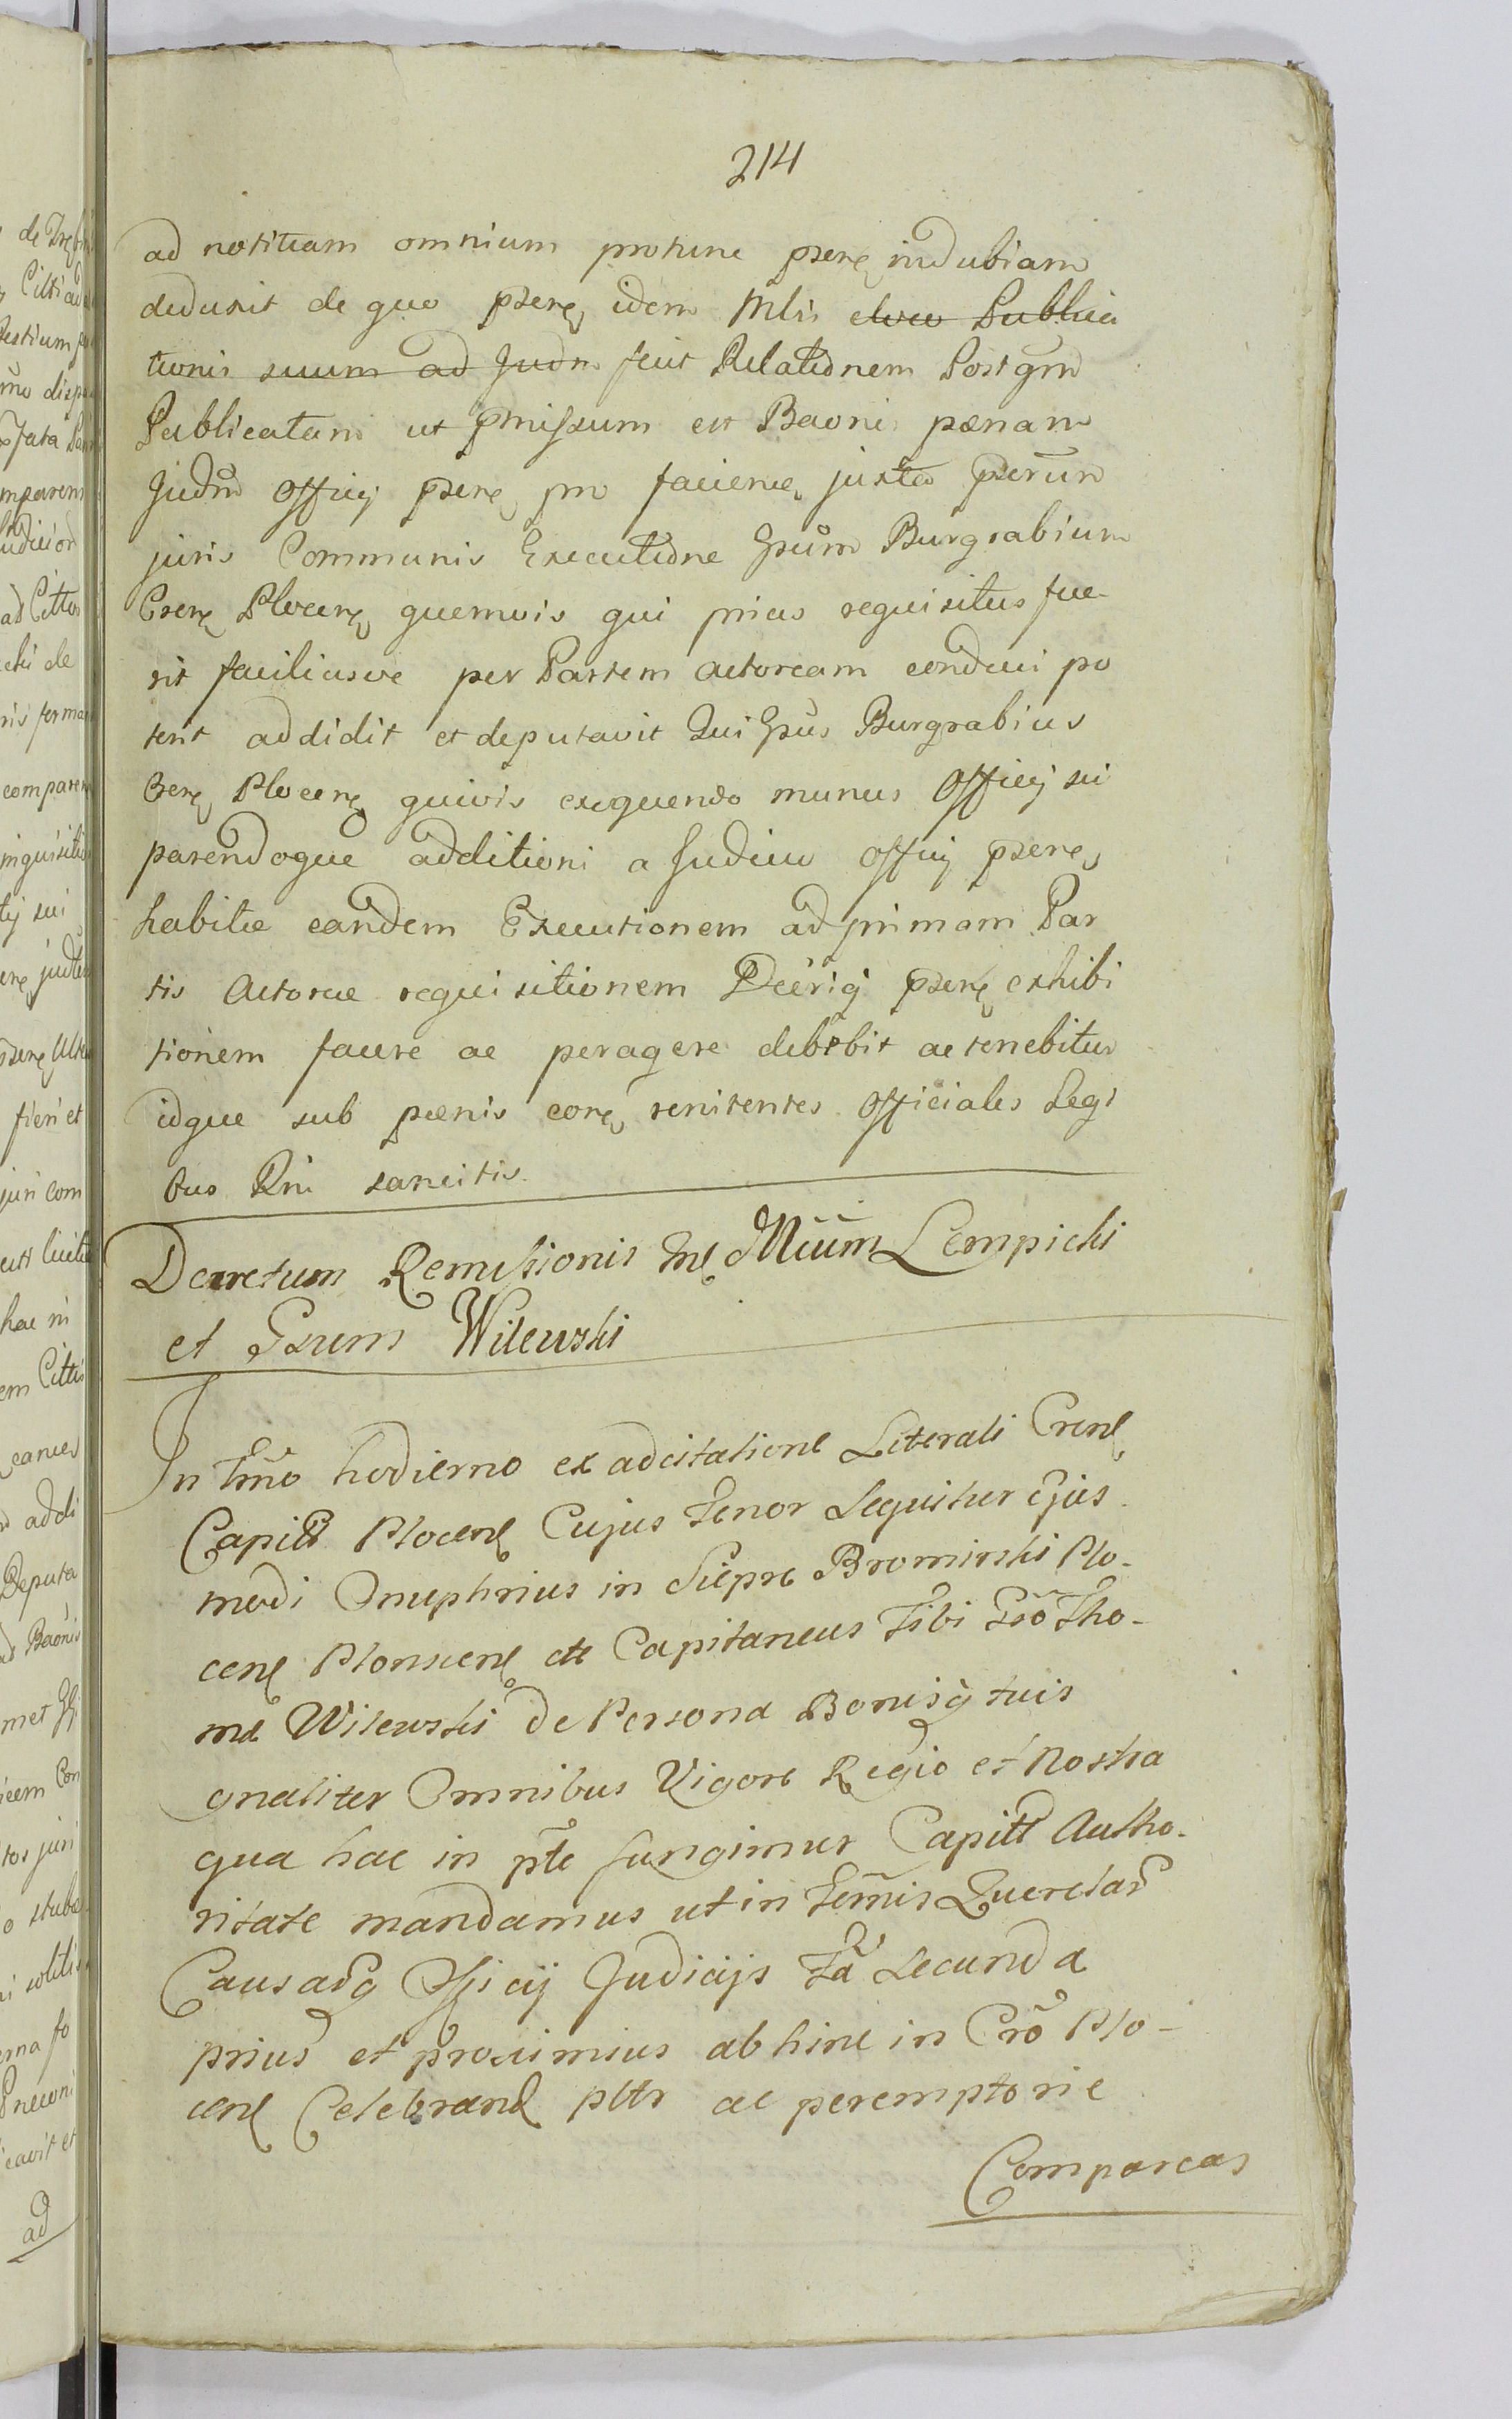 214
ad notitiam omnium protunc psenę indubiam
deduxit de quo psenę idem Mlis eoru Publica
tionis suum ad Judm fecit Relationem Post qm̃
Publicatam ut pmissum est Baonis pœnam
Judm̃ Officij psenę pro faciene, juxta perum
juris Communis Executione Gsum Burgrabium
Csenę Plocenę quemvis qui prius requisitus fue
rit faciliusve per Partem actoream conduci po
terit addidit et deputavit Qui Gsus Burgrabius
Csenę Plocenę quivis exequendo munus Officij sui
parendoque additioni a Judicio Officij psenę
habitæ eandem Executionem ad primam Par
tis Actoreæ requisitionem Decriq̃ psenę exhibi
tionem facere ac peragere debebit ac tenebitur
idque sub pœnis eorę renitentes Officiales Legi
bus Rni sancitis.
Decretum Remissionis Inę Mcum Lempicki
et Gsum Wilewski
In Tmno hodierno ex adcitatione Literali Crenę
Capitl Plocenę Cujus Tenor Sequitur Ejus
modi Onuphrius in Siepre Brominski Plo-
cenę Plonscenę ett Capitaneus Tibi Gso Tho-
ma Wilewski de Persona Bonisq̃ tuis
gnaliter Omnibus Vigore Regio et Nostra
qua hac in pte fungimur Capitl Autho-
ritate mandamus ut in Termis Querelar
Causarq Officij Judicijs Fa Secunda
prius et proximius abhinc in Cro Plo-
cenę Celebranę pltr ac peremptorie
Compareas
de
Cittad
Testium
mo
fata
mparem
ad Citter
cki de
ris forma
comparen
inquisitio
tij sui
fieri et
juri com
hac in
em Cittis
addi
Deputa
Baonis
met
tos juri
o
ad